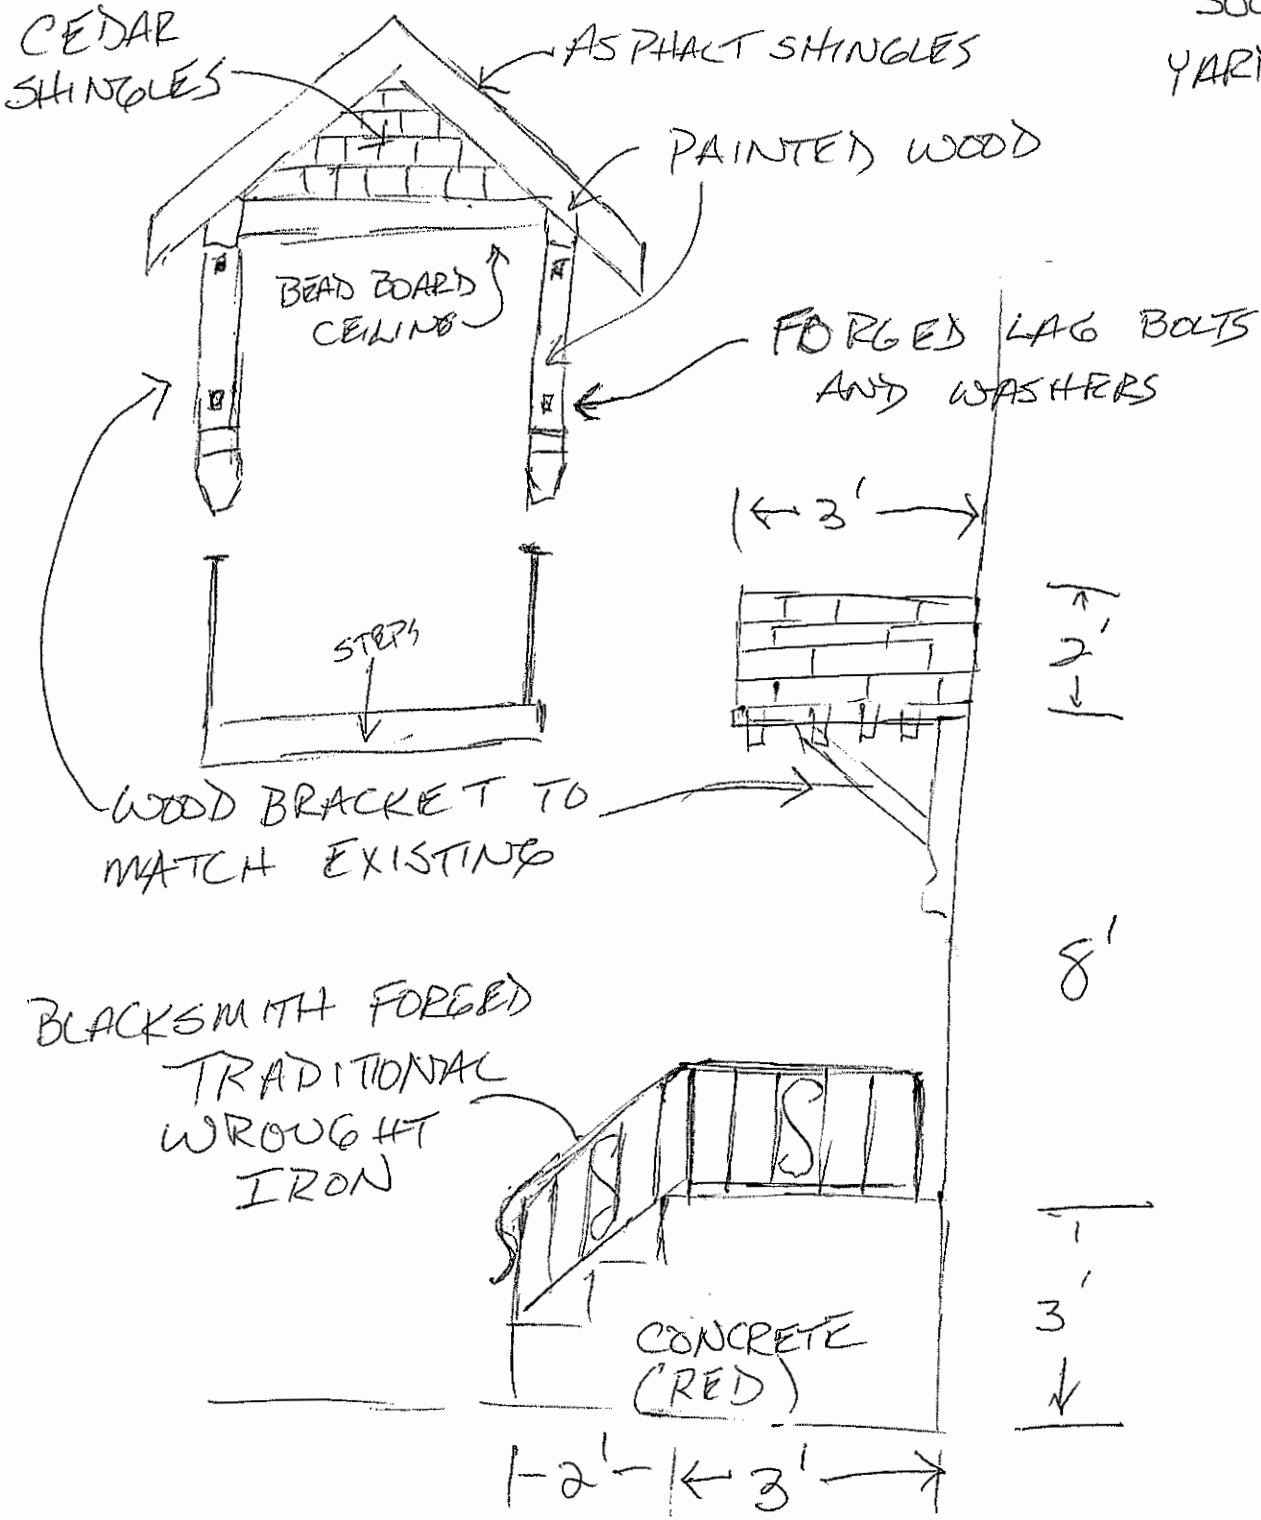 CEDAR
SHINGLES
ASPHALT SHINGLES
PAINTED WOOD
BEAD BOARD
CEILING
FORGED LAG BOLTS
AND WASHERS
3'
2'
STEPS
WOOD BRACKET TO
MATCH EXISTING
8'
BLACKSMITH FORGED
TRADITIONAL
WROUGHT
IRON
S
S
3'
CONCRETE
(RED)
2'
3'